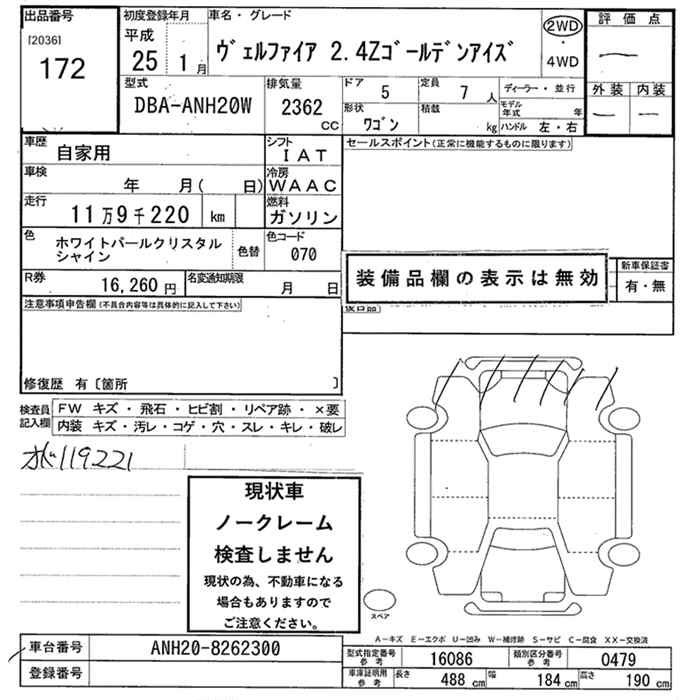 出品番号 初度登録年月 車名・グレード 評価点
[2036] 172
平成 25 1月
ヴェルファイア 2.4Zゴールデンアイズ
2WD ・ 4WD
―
外装 内装
― ―
型式 排気量 ドア 定員 ディーラー・並行
DBA-ANH20W 2362 CC 5 7人
モデル年式 年
形状 積載
ワゴン kg ハンドル 左・右
車歴 自家用 シフト IAT
セールスポイント(正常に機能するものに限ります)
車検 年 月( 日) 冷房 WAAC
走行 11万9千220 km 燃料 ガソリン
色 ホワイトパールクリスタルシャイン 色替 色コード 070
R券 16,260円 名変通知期限 月 日
装備品欄の表示は無効
新車保証書
有・無
注意事項申告欄(不具合内容等は具体的に記入して下さい)
修復歴 有〔箇所 〕
検査員記入欄
FW キズ・飛石・ヒビ割・リペア跡・×要
内装 キズ・汚レ・コゲ・穴・スレ・キレ・破レ
119221
現状車
ノークレーム
検査しません
現状の為、不動車になる
場合もありますので
ご注意ください。
スペア
A-キズ E-エクボ U-凹み W-補修跡 S-サビ C-腐食 XX-交換済
車台番号 ANH20-8262300
登録番号
型式指定番号参考 16086 類別区分番号参考 0479
車庫証明用参考 長さ 488cm 幅 184cm 高さ 190cm